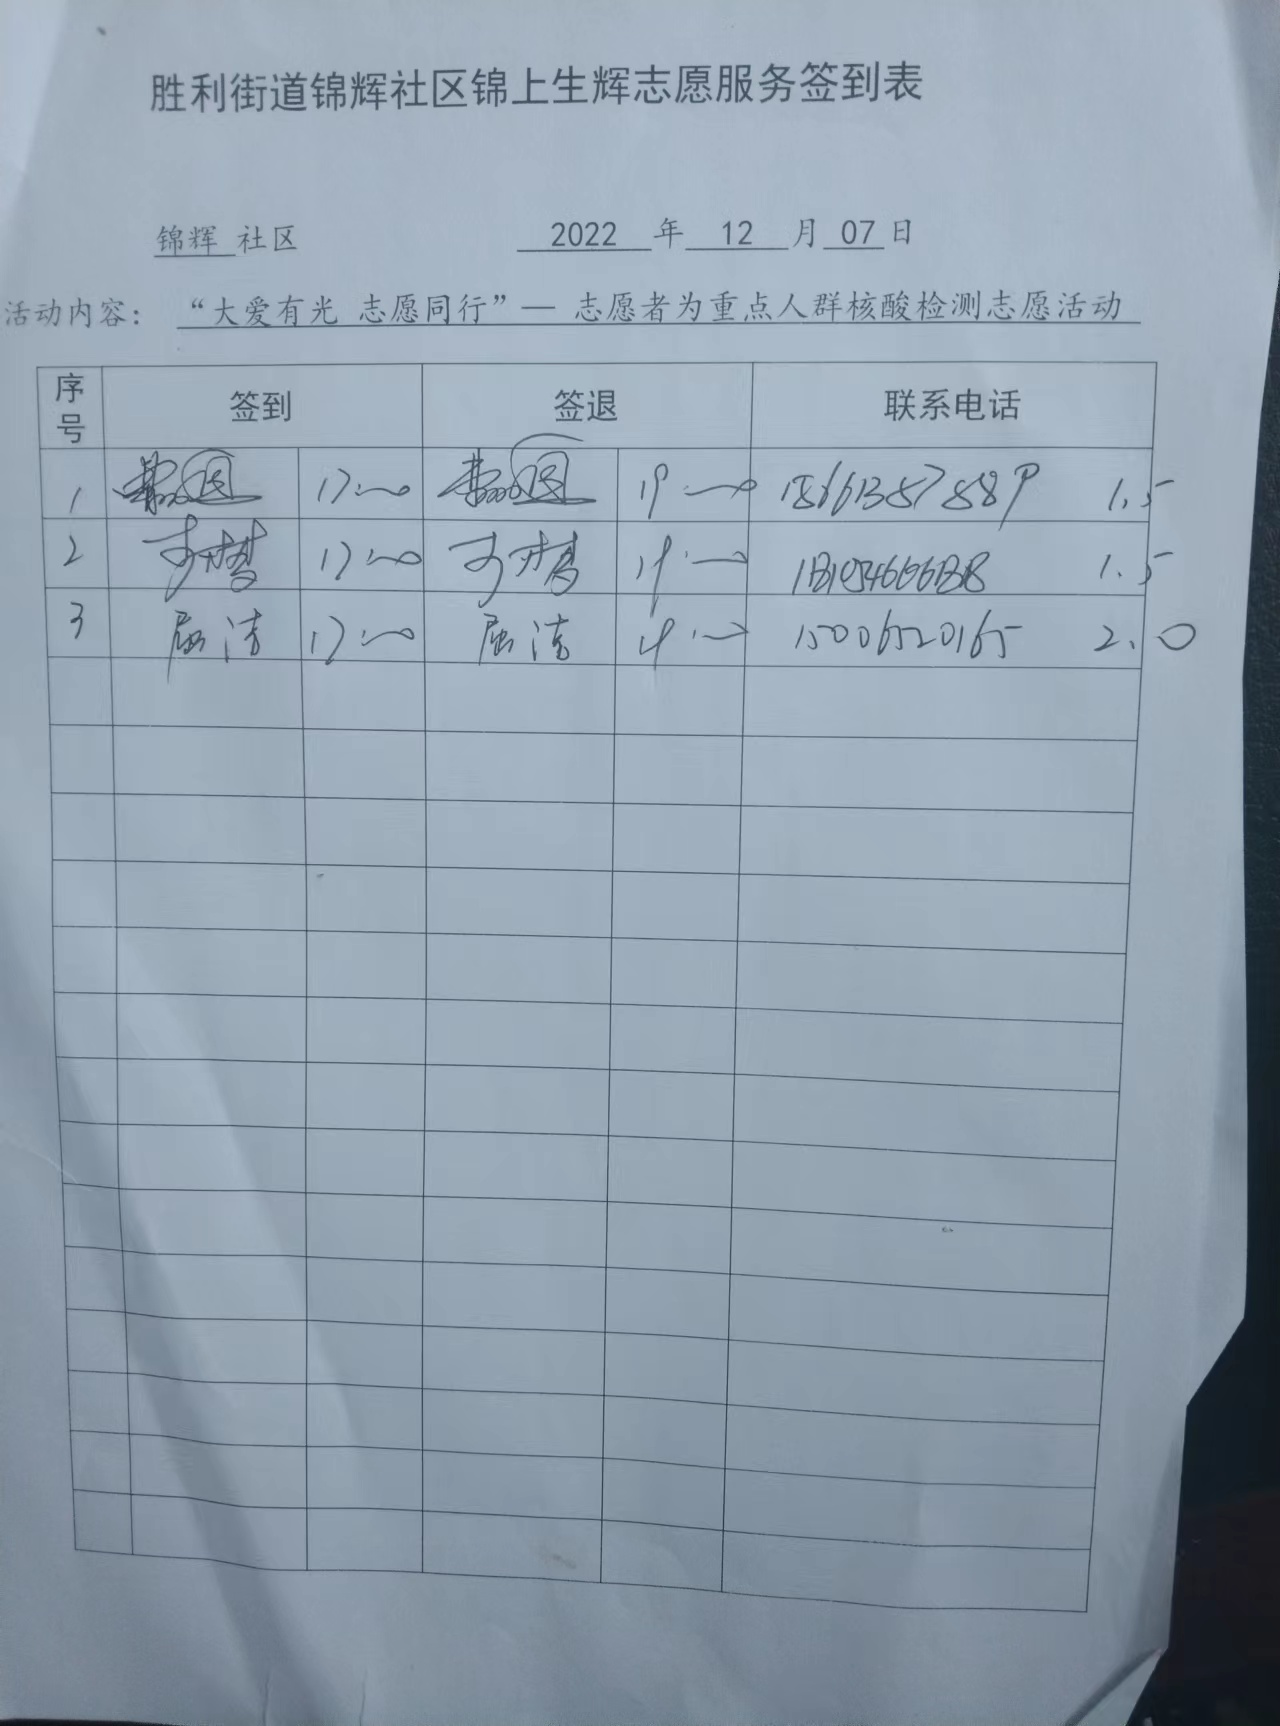 胜利街道锦辉社区锦上生辉志愿服务签到表
锦辉 社区 2022 年 12 月 07 日
活动内容： “大爱有光 志愿同行”— 志愿者为重点人群核酸检测志愿活动
序号 签到 签退 联系电话
1 17:00 19:00 15661357589 1.5
2 17:00 19:00 1.5
3 屈洁 17:00 屈洁 19:00 15006520165 2.0